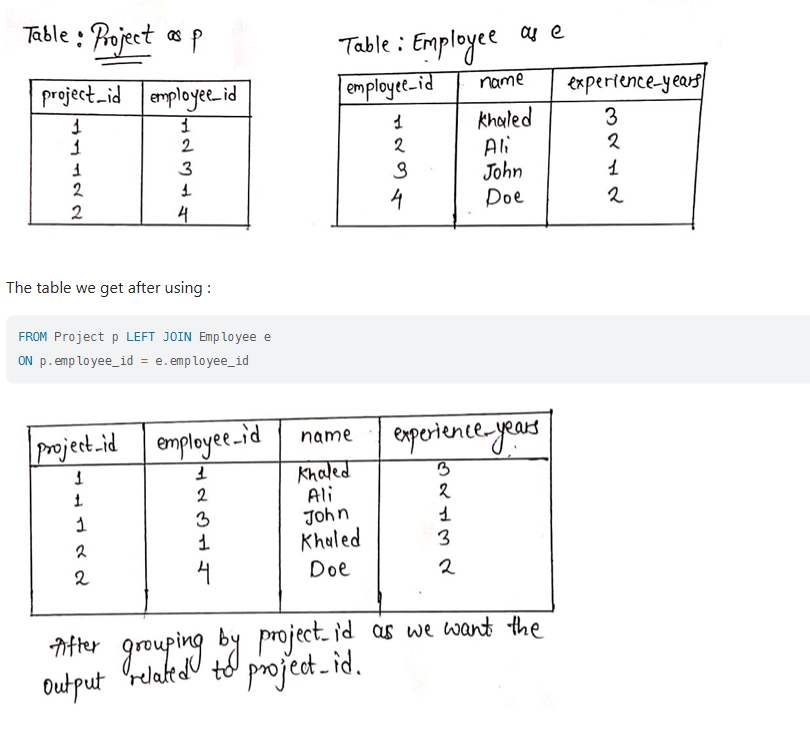 Table : Project as p
Table : Employee as e
project_id employee_id
1 1
1 2
1 3
2 1
2 4
employee_id name experience_years
1 Khaled 3
2 Ali 2
3 John 1
4 Doe 2
The table we get after using :
FROM Project p LEFT JOIN Employee e
ON p.employee_id = e.employee_id
project_id employee_id name experience_years
1 1 Khaled 3
1 2 Ali 2
1 3 John 1
2 1 Khaled 3
2 4 Doe 2
After grouping by project_id as we want the
output related to project_id.